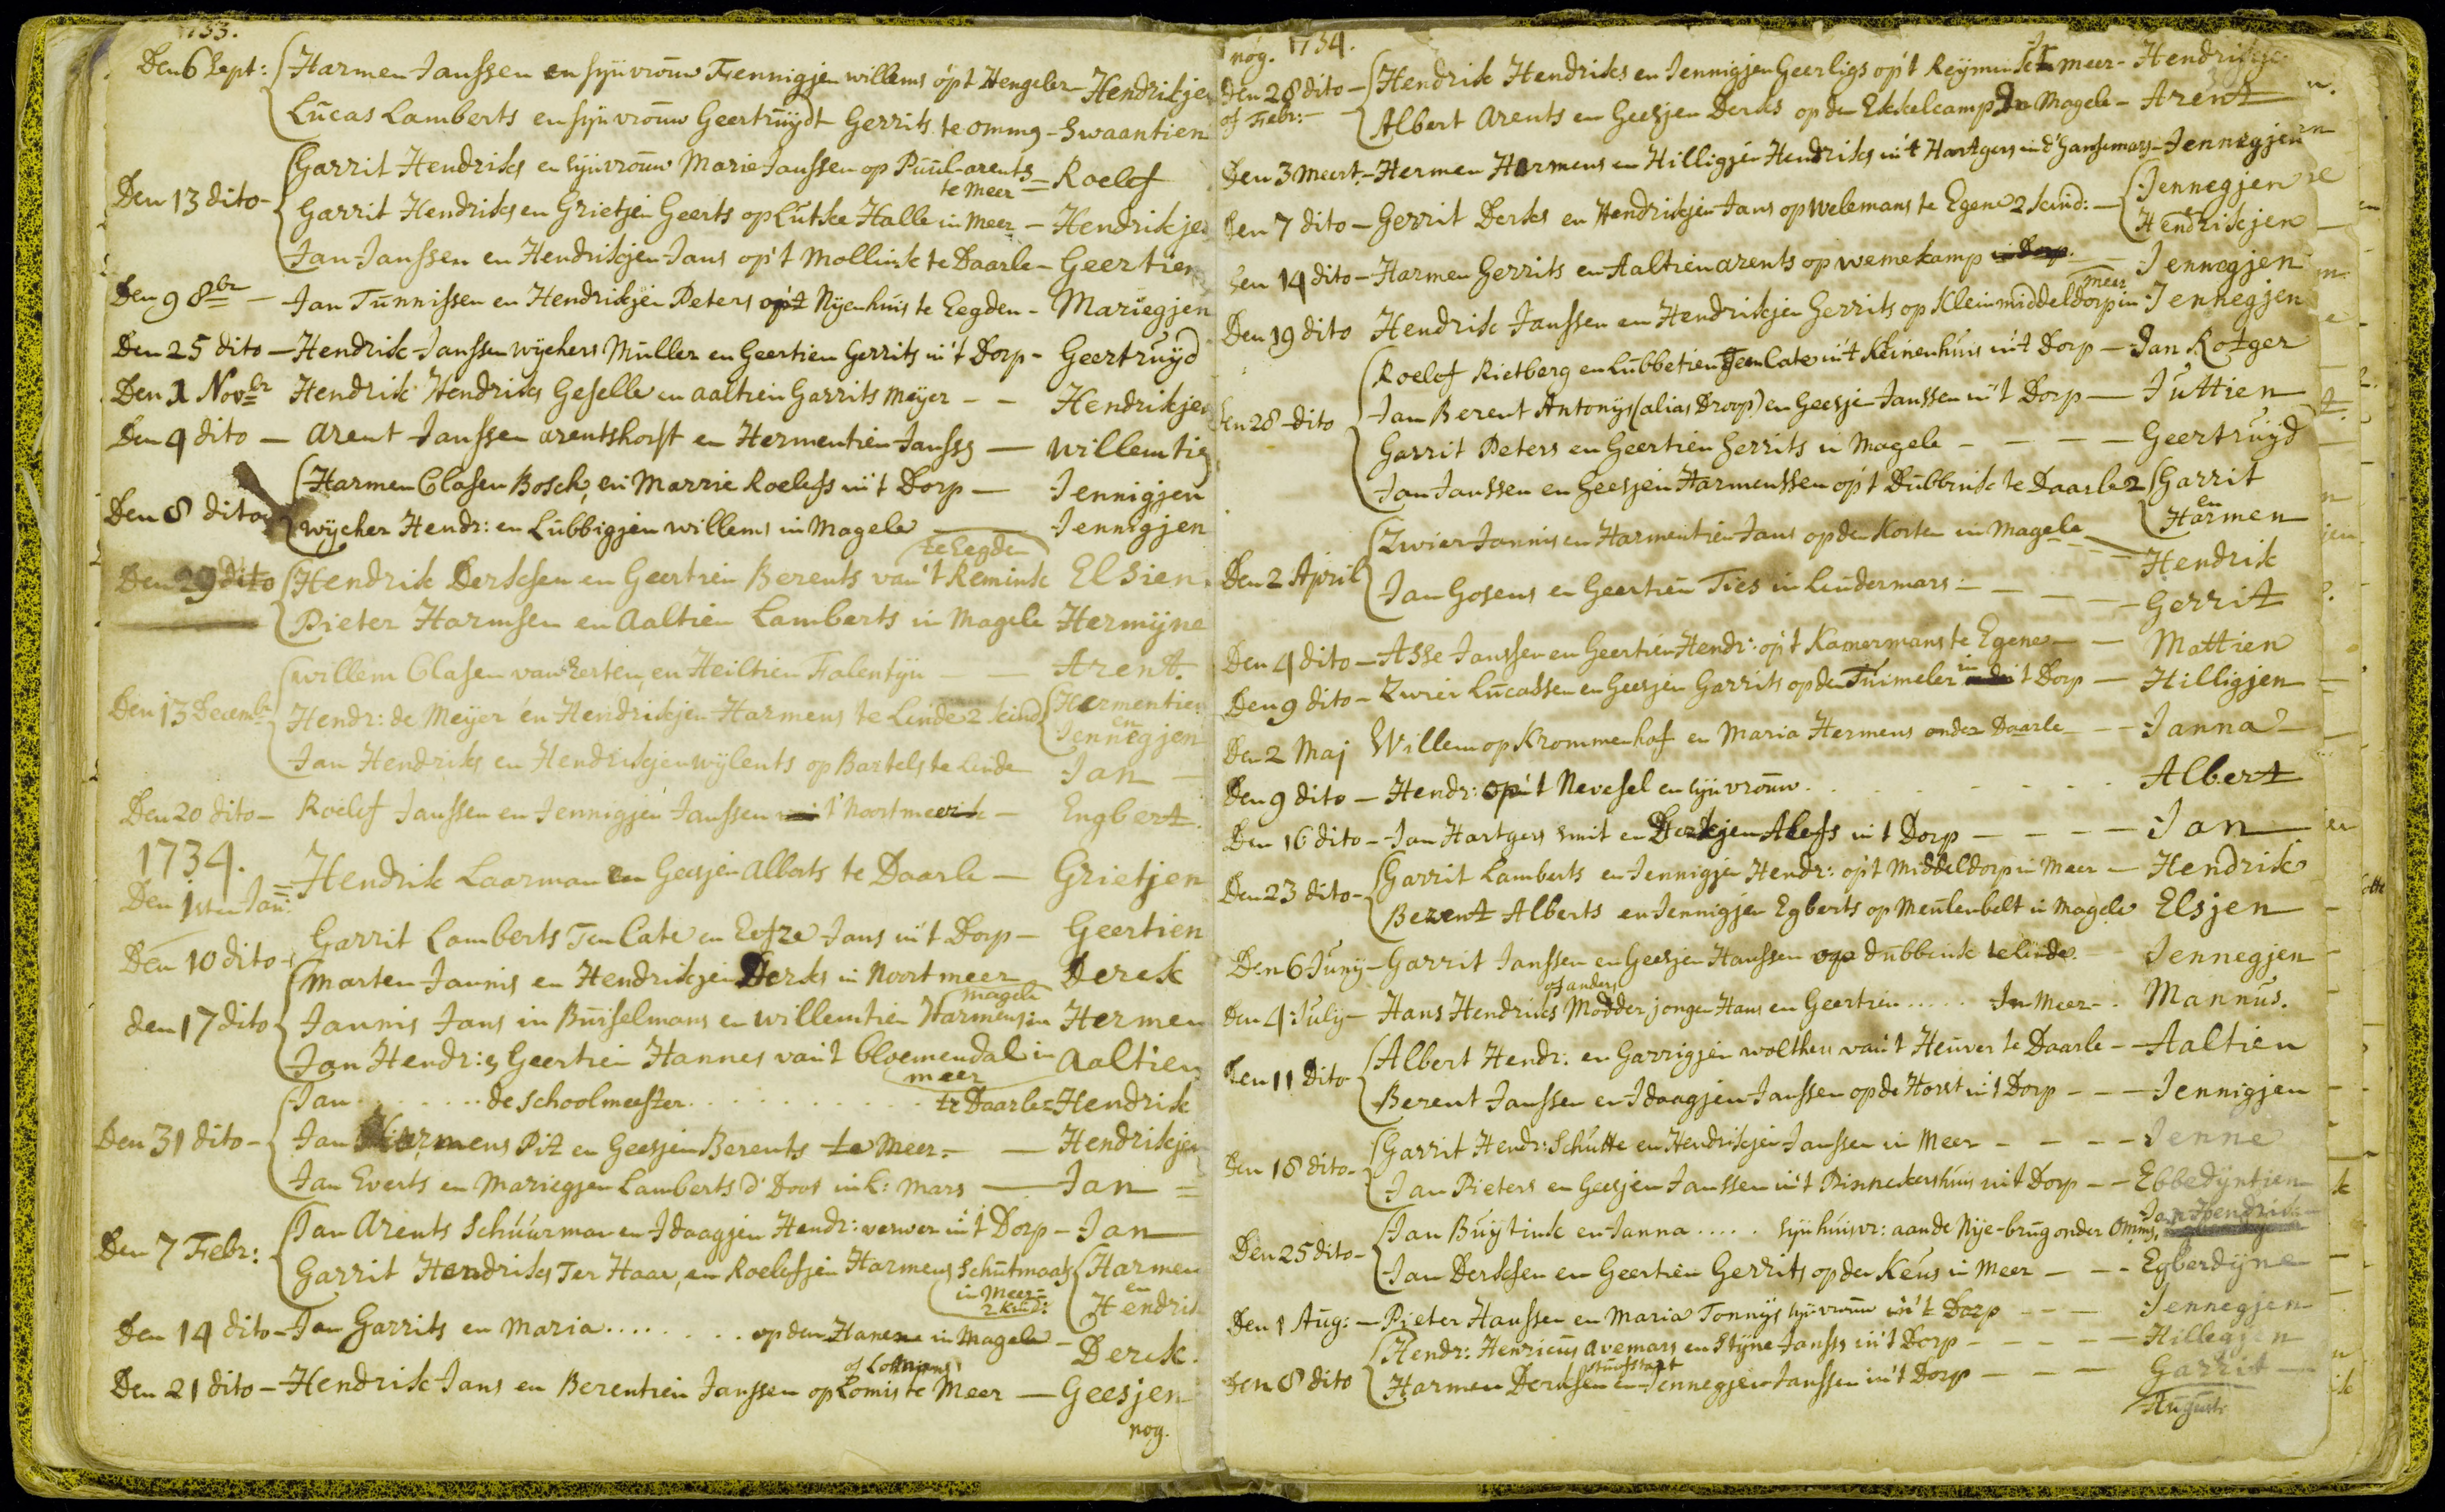 1733.
Den 6 Sept: Harmen Janssen en syn vrouw Fennigjen willems op't Hengeler - Hendrikjen
Lucas Lamberts en syn vrouw Geertruydt Gerrits te omme - Swaantien
Den 13 dito - Garrit Hendriks en syn vrouw Marie Janssen op Puul-arents te Meer = Roelef
Garrit Hendriks en Grietjen Geerts op Lutke Halle in Meer - Hendrikjen
Jan Janssen en Hendrikjen Jans op't Mollink te Daarle - Geertien
Den 9 8br - Jan Tunnissen en Hendrikjen Peters op't Nyenhuis te Eegden - Mariegjen
Den 25 dito - Hendrik Janssen wychers Muller en Geertien Gerrits in't Dorp - Geertruyd
Den 1 Novbr Hendrik Hendriks Geselle en aaltien Garrits Meyer - - Hendrikjen
Den 4 dito - Arent Janssen arentshorst en Hermentien Janss - willemtien
Den 8 dito Harmen Clasen Bosch, en Marrie Roelefs in't Dorp - Jennigjen
wycher Hendr: en Lubbigjen willems in Magele - Jennigjen
Den 29 dito Hendrik Derksen en Geertien Berents van't Remink te Eegden Elsien.
Pieter Harmsen en Aaltien Lamberts in Magele Hermyne
Den 13 Decembr willem Clasen van Zerten, en Heiltien Falentyn - - Arent.
Hendr: de Meyer en Hendrikjen Harmens te Linde 2 kind Hermentien
en
Jennegjen
Jan Hendriks en Hendrikjen wylents op Bartels te Linde Jan -
Den 20 dito - Roelef Janssen en Jennigjen Janssen in't Noortmeer - Engbert.
1734.
Den 1sten Jan: = Hendrik Laarman en Geesjen Alberts te Daarle - Grietjen
Den 10 dito - Garrit Lamberts Ten Cate en Eefze Jans in't Dorp - Geertien
Den 17 dito Marten Jannis en Hendrikjen Derks in Noortmeer Derck
Jannis Jans in Buiselmans en willemtien Harmens in Magele Hermen
Jan Hendr: & Geertien Hannes van't Bloemendal in meer Aaltien
Den 31 dito - Jan ........ de Schoolmeester ............ te Daarle = Hendrik
Jan Harmens Pit en Geesjen Berents te Meer - - Hendrikjen
Jan Everts en Mariegjen Lamberts d' Doos in L: Mars - Jan =
Den 7 Febr: Jan Arents Schuurman en Idaagjen Hendr: verwer in't Dorp - Jan
Garrit Hendriks Ter Haar, en Roelefjen Harmens Schutmaat in Meer = 2 kind: Harmen
en
Hendrik
Den 14 dito - Jan Garrits en Maria ........ op den Hanen in Magele - Derck.
Den 21 dito - Hendrik Jans en Berentien Janssen op Lomis of Lottmans te Meer - Geesjen
nog.
nog. 1734.
Den 28 dito of Febr: - Hendrik Hendriks en Jennigjen Geerligs op't Reymink Jn meer - Hendrikje
Albert Arents en Geesjen Derks op den Ekkelcamp Jn Magele - Arent
Den 3 Meert. - Hermen Harmens en Hilligjen Hendriks in't Hartgers in d' Hansemars - Jennegjen
Den 7 dito - Gerrit Derks en Hendrikjen Jans op welemans te Egene 2 kind: - Jennegjen
&
Hendrikjen
Den 14 dito - Harmen Gerrits en Aaltien arents op wemekamp in Dorp. - Jennegjen
Den 19 dito Hendrik Janssen en Hendrikjen Gerrits op Klein middeldorp in meer Jennegjen
Den 28 dito Roelof Rietberg en Lubbetien Teen Cate in't Kleinenhuis in't Dorp - Jan Rotger
Jan Berent Antonys (alias Droop) en Geesjen Janssen in't Dorp - Juttien
Garrit Peters en Geertien Gerrits in Magele - - - - Geertruyd
Jan Janssen en Geesjen Harmenssen op't Dubbink te Daarle 2 Garrit
en
Harmen
Den 2 April Zwier Jannis en Harmentien Jans op den Korten in Magele - Hendrik
Jan Gosens en Geertien Ties in Lindermars: - - - - Gerrit
Den 4 dito - Asse Janssen en Geertien Hendr: op't Kamermans te Egene - - Mattien
Den 9 dito - Zwier Lucassen en Geesjen Garrits op den Tuimeler in 't Dorp - Hilligjen
Den 2 Maj Willem op Krommenhof en Maria Hermens onder Daarle - - Janna
Den 9 dito - Hendr: op't Nevesel en syn vrouw. . . . . . . Albert
Den 16 dito - Jan Hartgers smit en Derkjen Alefs in't Dorp - - - - Jan
Den 23 dito - Garrit Lamberts en Jennigjen Hendr: op't Middeldorp in Meer - Hendrik
Berent Alberts en Jennigjen Egberts op Meulenbelt in Magele Elsjen
Den 6 Juny - Garrit Janssen en Geesjen Hanssen op dubbink te Linde - - Jennegjen
Den 4 July - Hans Hendriks of anders Modder jongen Hans en Geertien ..... Jn Meer -. Mannus.
Den 11 dito Albert Hendr: en Garrigjen wolthers van't Heuver te Daarle - Aaltien
Berent Janssen en Idaagjen Janssen op de Horst in't Dorp - - - Jennigjen
Den 18 dito - Garrit Hendr: Schutte en Hendrikjen Janssen in Meer - - - Jenne
Jan Pieters en Geesjen Janssen in't Pinnekershuis in't Dorp - - Ebbedyntien
Den 25 dito - Jan Buytink en Janna ..... syn huisvr: aan de Nye-brug onder Omms, Jan Hendrik
Jan Derksen en Geertien Gerrits op den Keus in Meer - - - Egberdyne
Den 1 Aug: - Pieter Hanssen en Maria Tonnys syn vrouw in't Dorp - - - Jennegjen
Den 8 dito Hendr: Henricus Avemars en Styne Janss in't Dorp - - - - Hillegjen
Harmen Derksen en Jennegjen Janssen in't Dorp - - - Garrit
August: